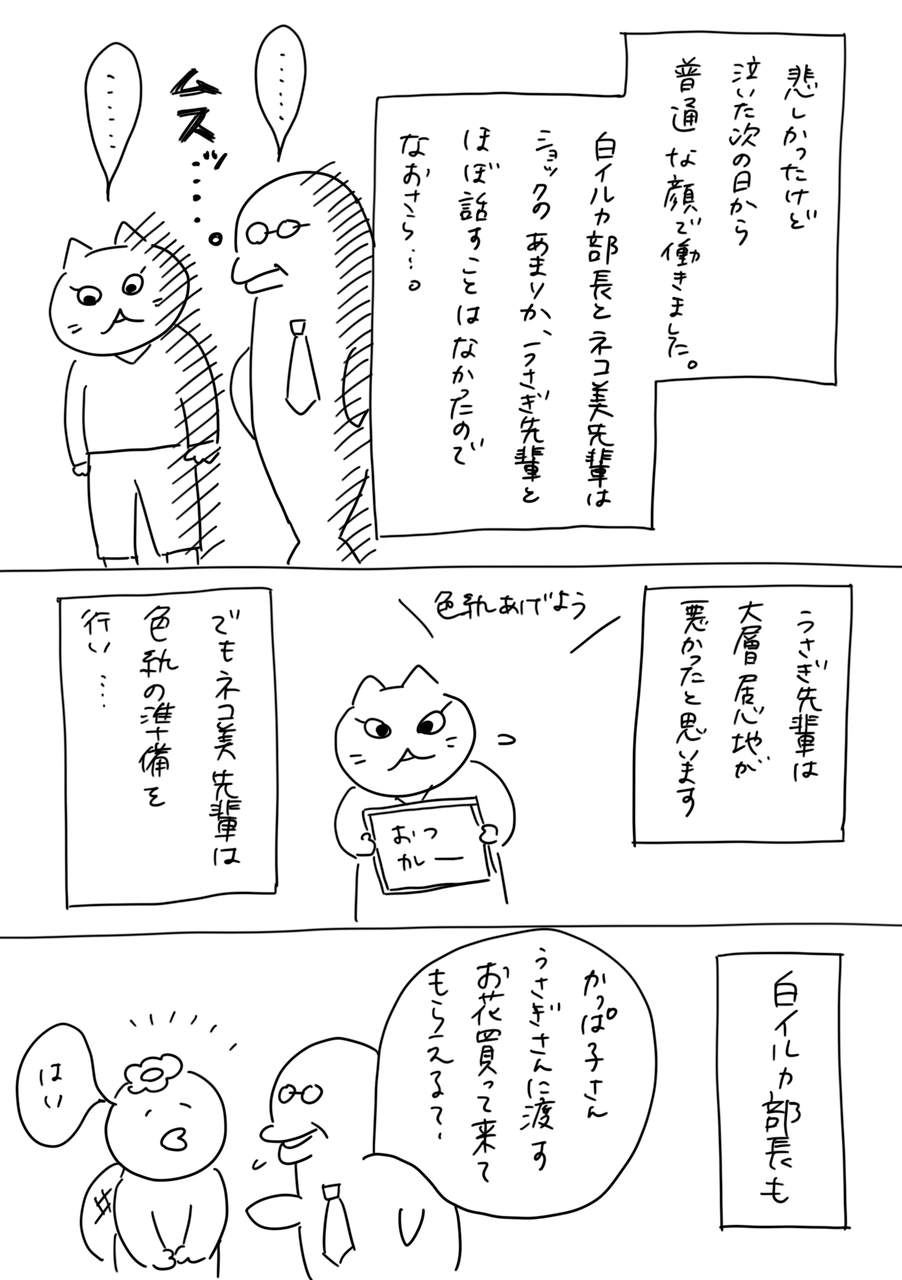 悲しかったけど
泣いた次の日から
普通な顔で働きました。
白イルカ部長とネコ美先輩は
ショックのあまりか、うさぎ先輩と
ほぼ話すことはなかったので
なおさら…。
……
ムスッ…。
……
うさぎ先輩は
大層居心地が
悪かったと思います
色紙あげよう
おつ
カレー
でもネコ美先輩は
色紙の準備を
行い…
白イルカ部長も
かっぱ子さん
うさぎさんに渡す
お花買って来て
もらえる?
はい